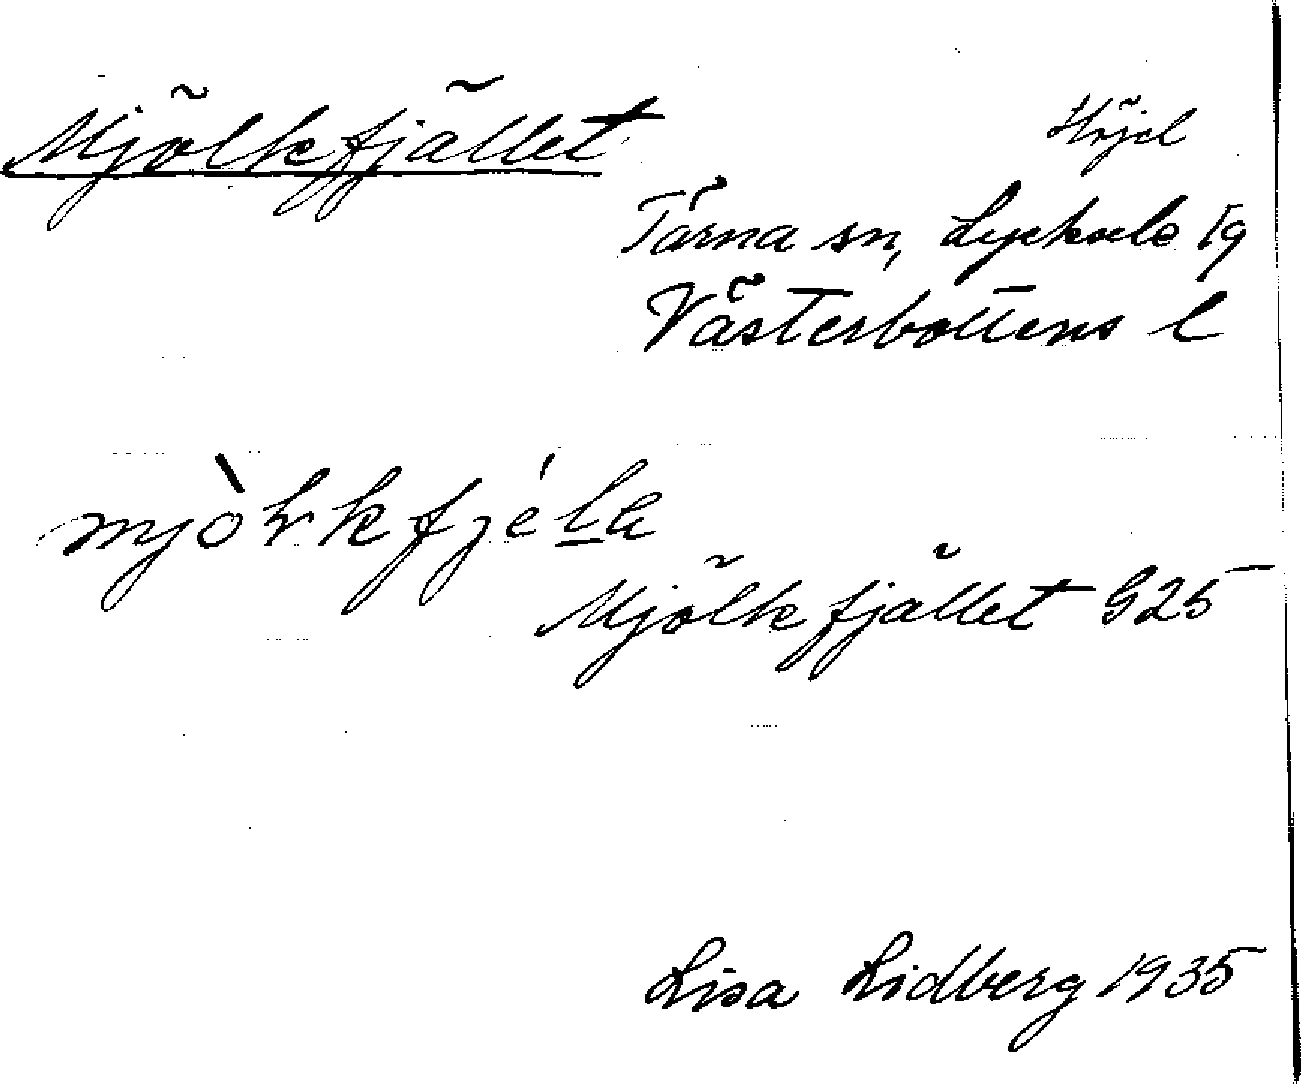 Mjölkfjället
Höjd
Tärna sn, Lycksele lg
Västerbottens l
Mjölkfjället G25
Lisa Lidberg 1935